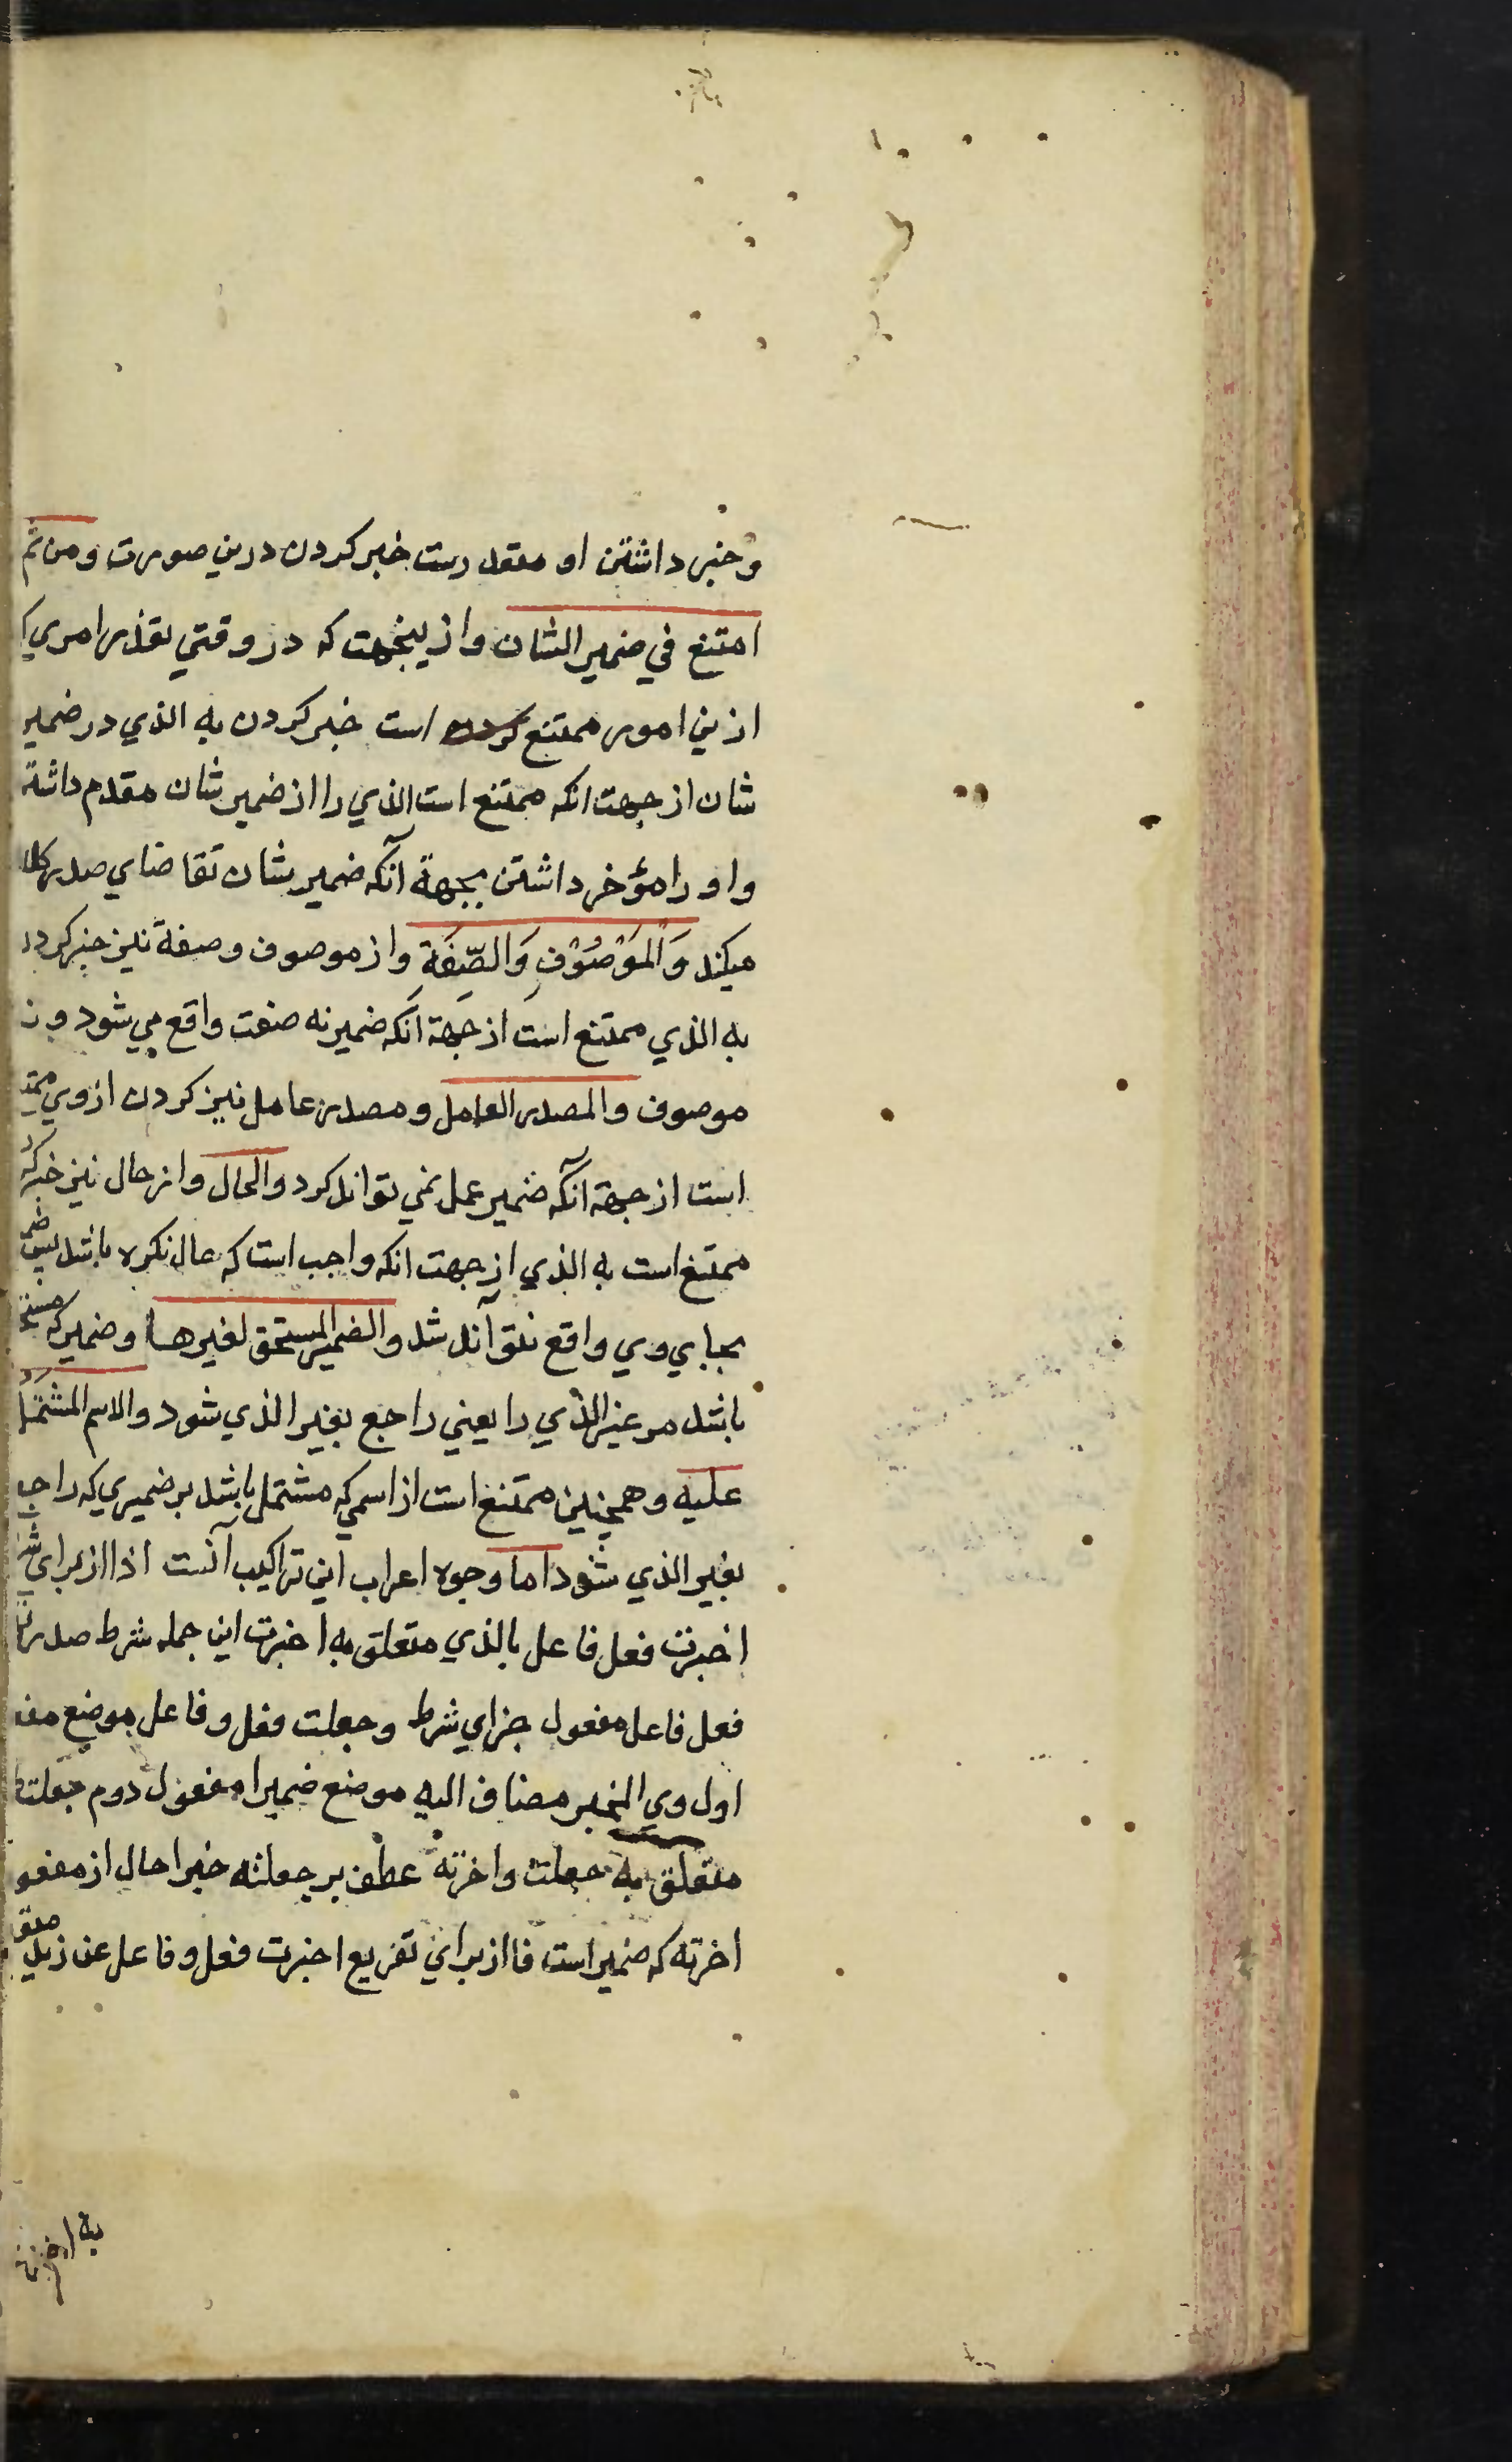 و خبر داشتن او متعذرست خبر کردن درین صورت ومن ثم
امتنع في ضمير الشان وازینجهت که در وقتي تعذر امري
ازین امور ممتنع است خبر کردن به الذي در ضمير
شان از جهت انکه ممتنع است الذي را از ضمير شان مقدم داشته
و او را مؤخر داشتن بجهة آنکه ضمير شان تقاضاي صدر کلا
میکند وَالْمَوْصُوْفِ وَالصِّفَةِ واز موصوف وصفة نیز خبر کردن
به الذي ممتنع است از جهة انکه ضمير نه صفت واقع مي شود و نه
موصوف والمصدر العامل ومصدر عامل نیز کردن از وي ممتنع
است از جهة آنکه ضمير عمل نمي تواند کرد والحال واز حال نیز خبر کرد
ممتنع است به الذي از جهت انکه واجب است که حال نکره باشد پس ضمير
بجاي وي واقع نتواند شد والضمير المستحق لغيرها وضمير که مستحق
باشد مر غير الذي را یعني راجع بغير الذي شود والاسم المشتمل
علیه وهمچنین ممتنع است از اسمي که مشتمل باشد بر ضميري که راجع
بغير الذي شود اما وجوه اعراب این تراکیب آنست اذا از براي شر
اخبرت فعل فاعل بالذي متعلق به اخبرت این جمله شرط صدرتها
فعل فاعل مفعول جزاي شرط وجعلت فعل وفاعل موضع مفعول
اول وي المخبر مضاف اليه موضع ضميرا مفعول دوم جعلت
متعلق به جعلت واخرته عطف بر جعلته خبرا حال از مفعول
اخرته که ضمير است فا از براي تفریع اخبرت فعل وفاعل عن زید متعلق
به اخرته